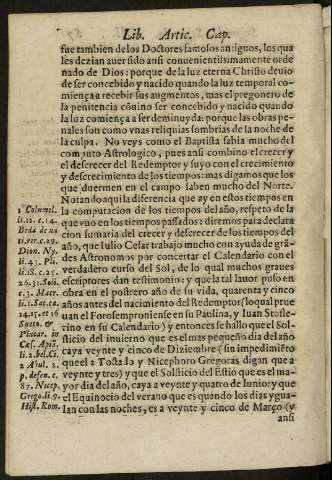 Lib. Artic. Cap.
fue tambien de los Doctores famosos antiguos, los qua
les dezian auer sido ansi conuenientissimamente orde
nado de Dios: porque de la luz eterna Christo deuio
de ser concebido y nacido quando la luz temporal co-
miença a recebir sus augmentos, mas el pregonero de
la penitencia cõuino ser concebido y nacido quando
la luz comiença a ser deminuyda: porque las obras pe-
nales son como vnas reliquias sombrias de la noche de
la culpa. No veys como el Baptista sabia mucho del
computo Astrologico, pues ansi combino el crecer y
el descrecer del Redemptor y suyo con el crecimiento
y descrecimiento de los tiempos: mas digamos que los
que duermen en el campo saben mucho del Norte.
Notando aqui la diferencia que ay en estos tiempos en
la computacion de los tiempos del año, respeto de la
que vuo en los tiempos passados: diremos para declara
cion sumaria del crecer y descrecer de los tiempos del
año, que Iulio Cesar trabajo mucho con ayuda de grã-
des Astronomos por concertar el Calendario con el
verdadero curso del Sol, de lo qual muchos graues
escriptores dan testimonio: y que la tal lauor puso en
obra en el postrero año de su vida, quarenta y cinco
años antes del nacimiento del Redemptor (lo qual prue
uan el Forosemproniense en su Paulina, y Iuan Stofle-
vino en su Calendario) y entonces se hallo que el Sol-
sticio del inuierno que es el mas pequeño dia del año
caya veynte y cinco de Diziembre (sin impedimẽto
que el 2 Tostado y Nicephoro Gregoras digan que a
veynte y tres) y que el Solsticio del Estio que es el ma-
yor dia del año, caya a veynte y quatro de Iunio: y que
el Equinocio del verano que es quando los dias yguа-
lan con las noches, es a veynte y cinco de Março (y
ansi
1 Columel.
li. 11. c. 14.
Beda de na
ti. rer. c. 29.
Dion. Ny.
li. 43. Pli.
li. 18. c. 25.
26. 31. Soli.
c. 3. Macr.
li. 1. Sat. ca.
14. 15. et 16
Sueto. &
Plutar. in
Cæs. Apiã.
li. 2. bel. Ci.
2 Abul. 2.
p. defen. c.
87. Nicep.
Grego. li. 9.
Hist. Rom.